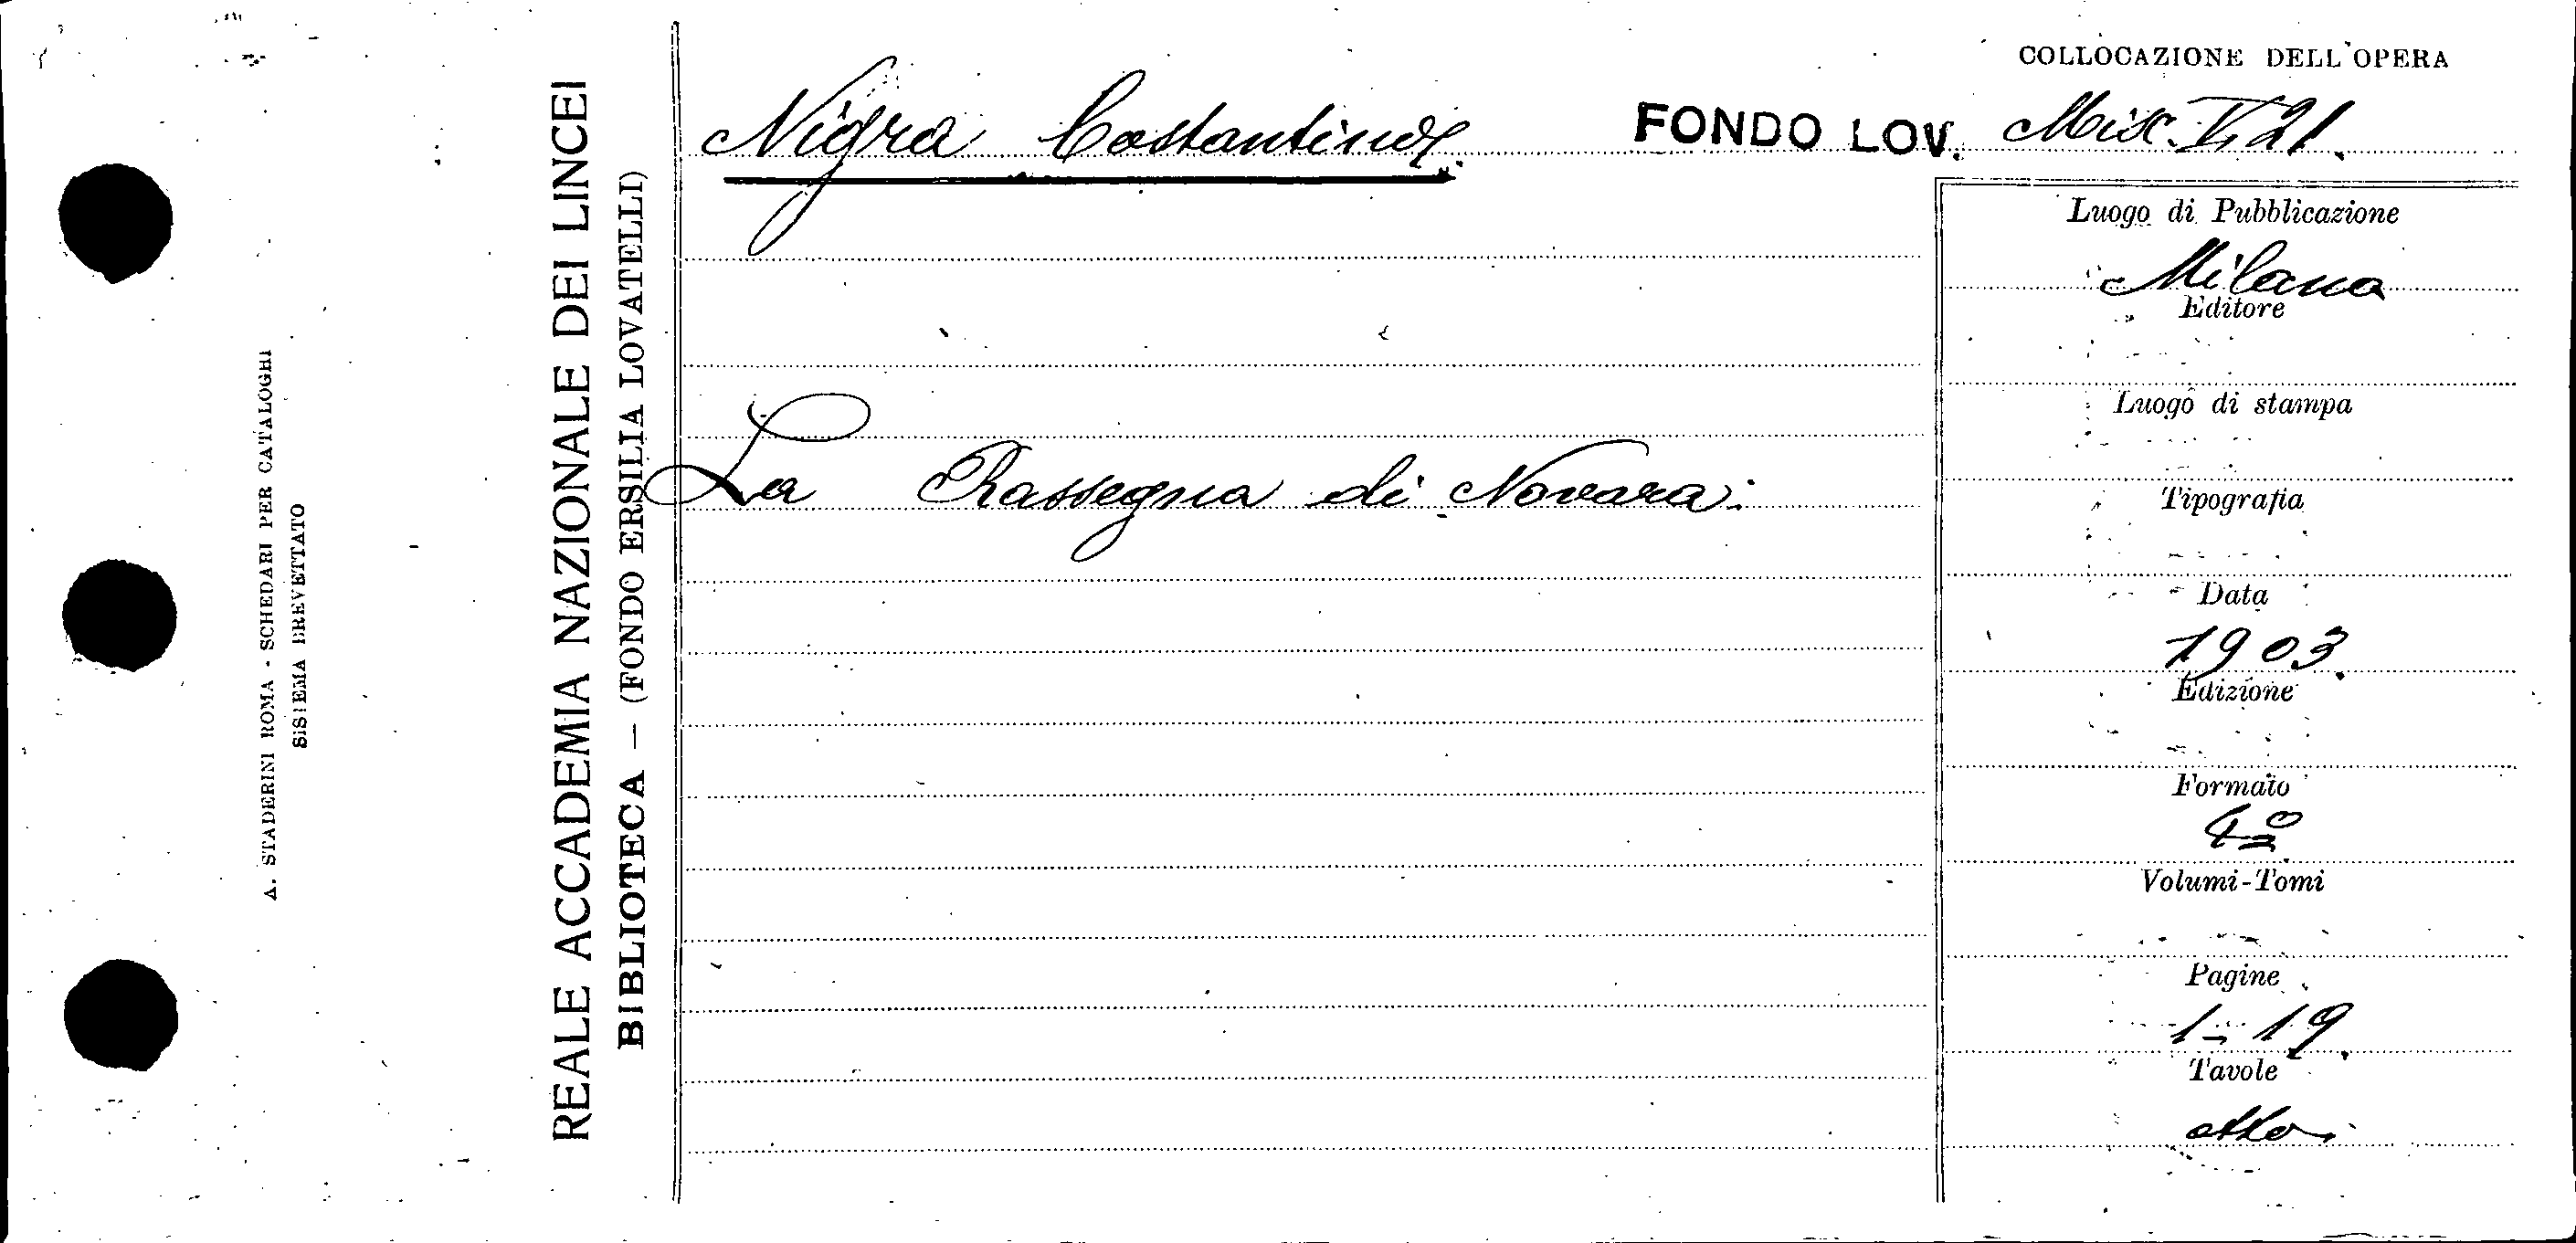 COLLOCAZIONE DELL'OPERA
Nigra Costantino. FONDO LOV. Misc. V, 21.
La Rassegna di Novara.
Luogo di Pubblicazione
Milano
Editore
Luogo di stampa
Tipografia
Data
1903.
Edizione
Formato
Volumi-Tomi
Pagine
1-19.
Tavole
REALE ACCADEMIA NAZIONALE DEI LINCEI
BIBLIOTECA — (FONDO ERSILIA LOVATELLI)
A. STADERINI ROMA - SCHEDARI PER CATALOGHI
SISTEMA BREVETTATO